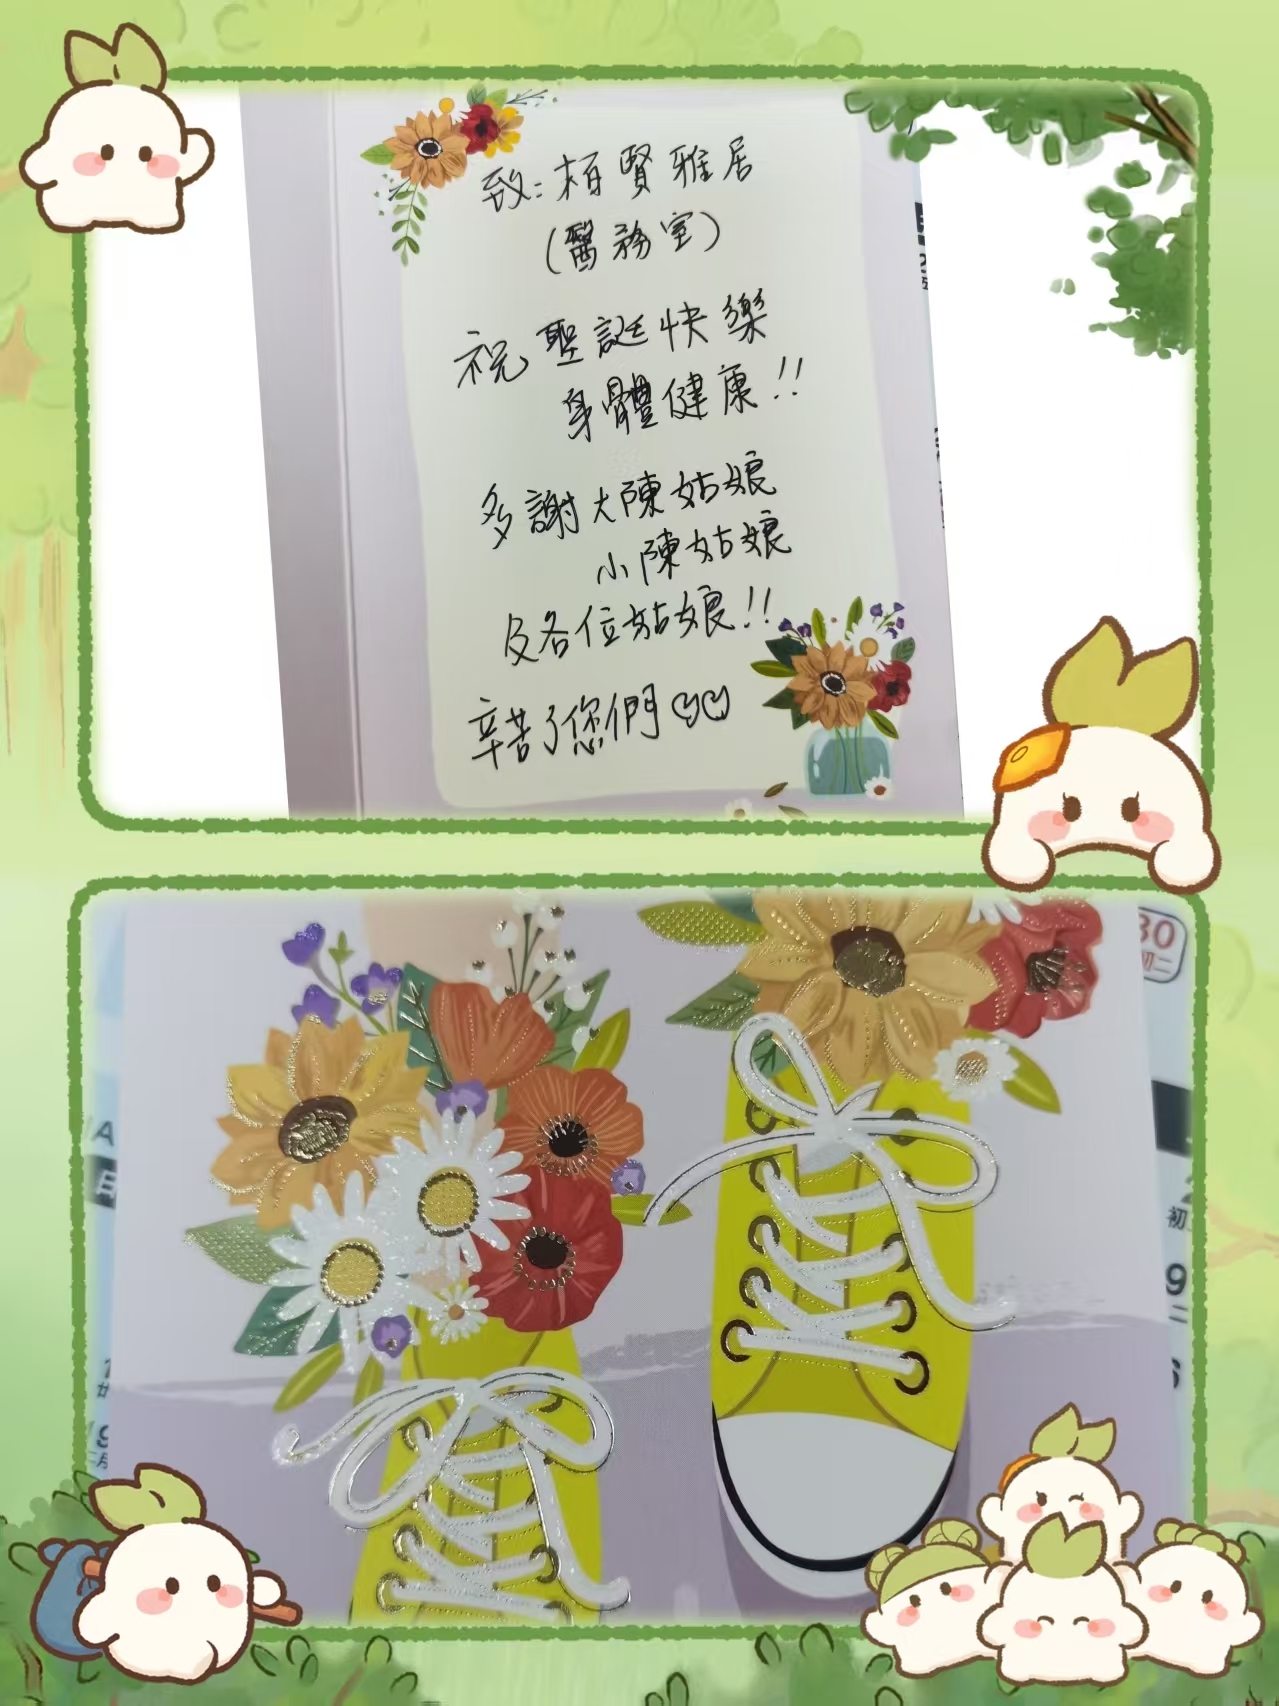 致：栢賢雅居
（醫務室）
祝聖誕快樂
身體健康!!
多謝大陳姑娘
小陳姑娘
及各位姑娘!!
辛苦了您們
30
初二
初
9
二
6
9
二月